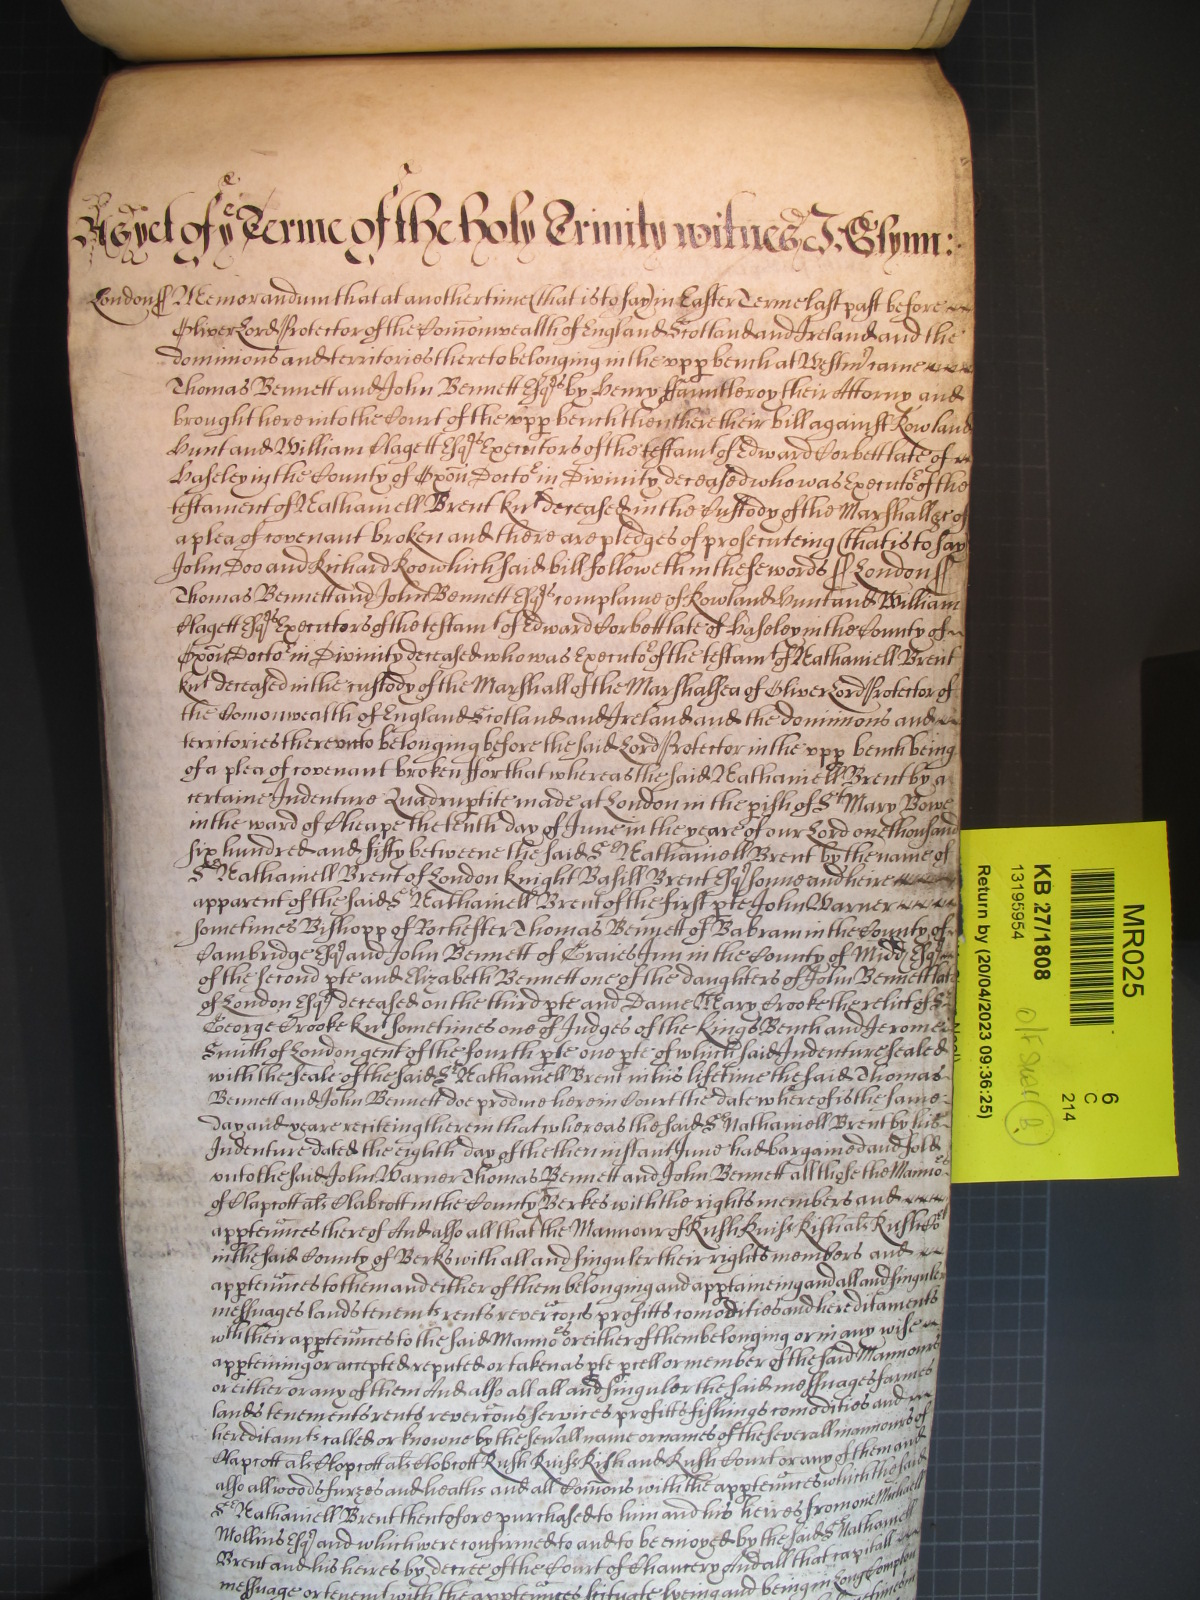 As yet of ye Terme of the holy Trinity witnes J. Glynn:
London ss Memorandum that at another time (that is to say) in Easter Terme last past before
Oliver Lord Protector of the Com̄onwealth of England Scotland and Ireland and the
dominions and territories thereto belonging in the vpp bench at Westmr came
Thomas Bennett and John Bennett Esqrs by Henry ffauntleroy their Attorny and
brought here into the Court of the vpp bench then there their bill against Rowland
Hunt and William Clagett Esqrs Executors of the testamt of Edward Corbett late of
Haseley in the County of Oxon̄ Doctor in Divinity deceased who was Executor of the
testament of Nathaniell Brent knt deceased in the Custody of the Marshall &c of
a plea of covenant broken and there are pledges of prosecuteing (that is to say
John Doo and Richard Roo which said bill followeth in these words ss London ss
Thomas Bennett and John Bennett Esqrs complaine of Rowland Hunt and William
Clagett Esqrs Executors of the testamt of Edward Corbett late of Haseley in the County of
Oxon̄ Doctor in Divinity deceased who was Executor of the testamt of Nathaniell Brent
knt deceased in the custody of the Marshall of the Marshalsea of Oliver Lord Protector of
the Comonwealth of England Scotland and Ireland and the dominions and
territories therevnto belonging before the said Lord Protector in the vpp bench being
of a plea of covenant broken ffor that whereas the said Nathaniell Brent by a
certaine Indenture Quadruptite made at London in the pish of St Mary Bowe
in the ward of Cheape the tenth day of June in the yeare of our Lord one thousand
six hundred and fifty betweene the said Sr Nathaniell Brent by the name of
Sr Nathaniell Brent of London knight Basill Brent Esqr sonne and heire
apparent of the said Sr Nathaniell Brent of the first pte John Warner
sometimes Bishopp of Rochester Thomas Bennett of Babram in the County of
Cambridge Esqr and John Bennett of Graies Inn in the County of Midd Esqr
of the second pte and Elizabeth Bennett one of the daughters of John Bennett late
of London Esqr deceased on the third pte and Dame Mary Crooke the relict of Sr
George Crooke knt sometimes one of Judges of the Kings Bench and Jerome
Smith of London gent of the fourth pte one pte of which said Indenture sealed
with the seale of the said Sr Nathaniell Brent in his lifetime the said Thomas
Bennett and John Bennett doe produce here in Court the date whereof is the same
day and yeare reciteing therein that whereas the said Sr Nathaniell Brent by his
Indenture dated the eighth day of the then instant June had bargained and sold
vnto the said John Warner Thomas Bennett and John Bennett all those the Mannors
of Clapcott als Clabcott in the County Berkes with the rights members and
apptenn̄ces thereof And also all that the Mannour of Rush Ruish Rish als Rush Cort
in the said County of Berks with all and singuler their rights members and
apptenn̄ces to them and either of them belonging and apptaineing and all and singuler
messuages lands tenemts rents revercōns profitts comodities and hereditaments
with their apptenn̄ces to the said Mannors or either of them belonging or in any wise
apptening or accepted reputed or taken as pte pcell or member of the said Mannours
or either or any of them And also all all and singuler the said messuages farmes
lands tenements rents revercōns services profitts fishings comodities and
hereditamts called or knowne by the sevall name or names of the severall mannours of
Clapcott als Clopcott als Clobcott Rush Ruish Rish and Rush Court or any of them and
also all woods furzes and heaths and all Com̄ons with the apptenn̄ces which the said
Sr Nathaniell Brent thentofore purchased to him and his heires from one Michaell
Mollins Esqr and which were confirmed to and to be enioyed by the said Sr Nathaniell
Brent and his heires by decree of the Court of Chancery And all that capitall
messuage or tenemt with the apptenn̄ces scituate lyeing and being in Long Compton
MR025
6
C
214
KB 27/1808
13195954
Return by (20/04/2023 09:36:25)